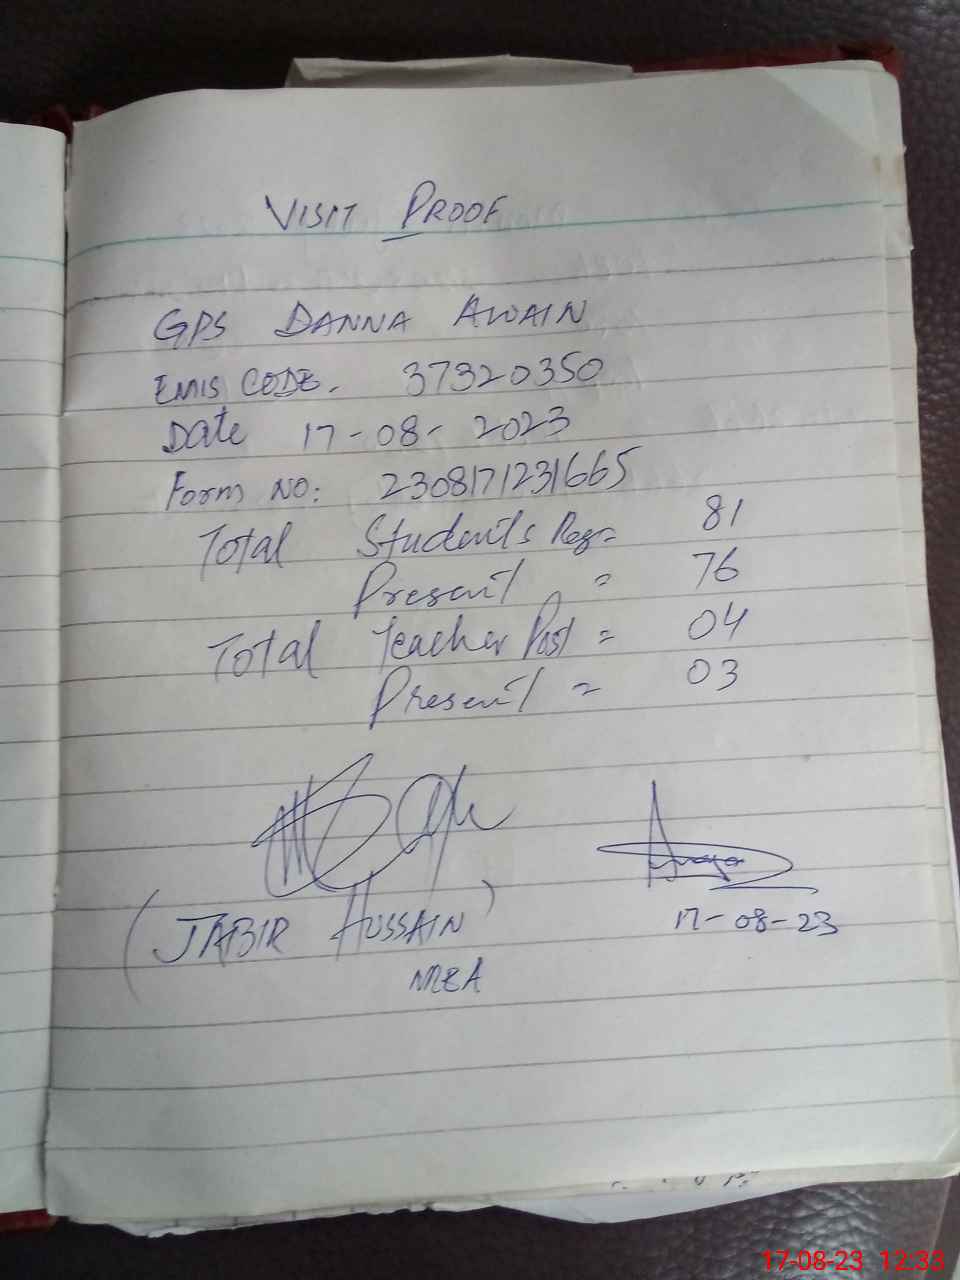 VISIT PROOF
GPS DANNA AWAIN
EMIS CODE. 37320350
Date 17-08-2023
Form NO: 2308171231665
Total Students Reg= 81
Present = 76
Total Teacher Post = 04
Present = 03
(JABIR HUSSAIN)
17-08-23
MEA
17-08-23 12:33